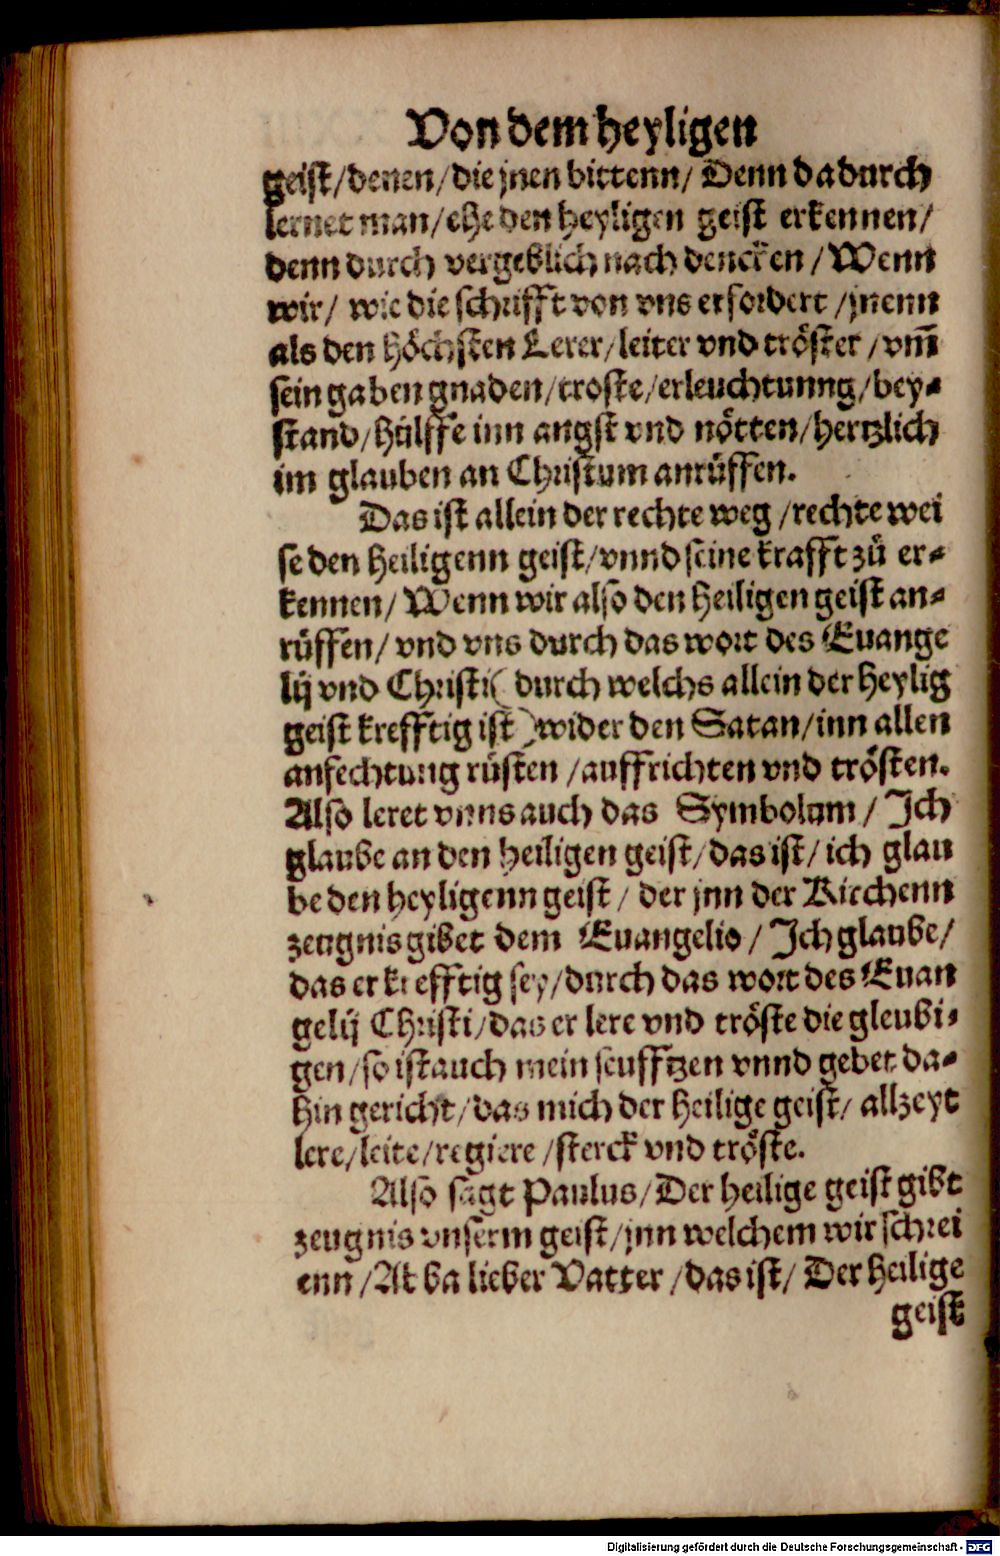 Von dem heyligen
geist/denen/die jnen bittenn/ Denn dadurch
lernet man/ehe den heyligen geist erkennen/
denn durch vergeblich nach dencken/Wenn
wir/ wie die schrifft von vns erfordert/jnenn
als den höchsten Lerer/leiter vnd tröster/vm̃
sein gaben gnaden/troste/erleuchtunng/bey-
stand/hülffe inn angst vnd nötten/hertzlich
im glauben an Christum anrůffen.
Das ist allein der rechte weg/rechte wei
se den heiligenn geist/vnnd seine krafft zů er-
kennen/Wenn wir also den heiligen geist an-
růffen/ vnd vns durch das wort des Euange
lij vnd Christi( durch welchs allein der heylig
geist krefftig ist)wider den Satan/inn allen
anfechtung rüsten/auffrichten vnd trösten.
Also leret vnns auch das Symbolum/ Ich
glaube an den heiligen geist/das ist/ich glau
be den heyligenn geist/ der jnn der Kirchenn
zeugnis gibet dem Euangelio/ Ich glaube/
das er krefftig sey/durch das wort des Euan
gelij Christi/das er lere vnd tröste die gleubi-
gen/so ist auch mein seufftzen vnnd gebet da-
hin gericht/das mich der heilige geist/ allzeyt
lere/leite/regiere/sterck vnd tröste.
Also sagt Paulus/Der heilige geist gibt
zeugnis vnserm geist/jnn welchem wir schrei
enn/Abba lieber Vatter/das ist/ Der heilige
geist
Digitalisierung gefördert durch die Deutsche Forschungsgemeinschaft - DFG